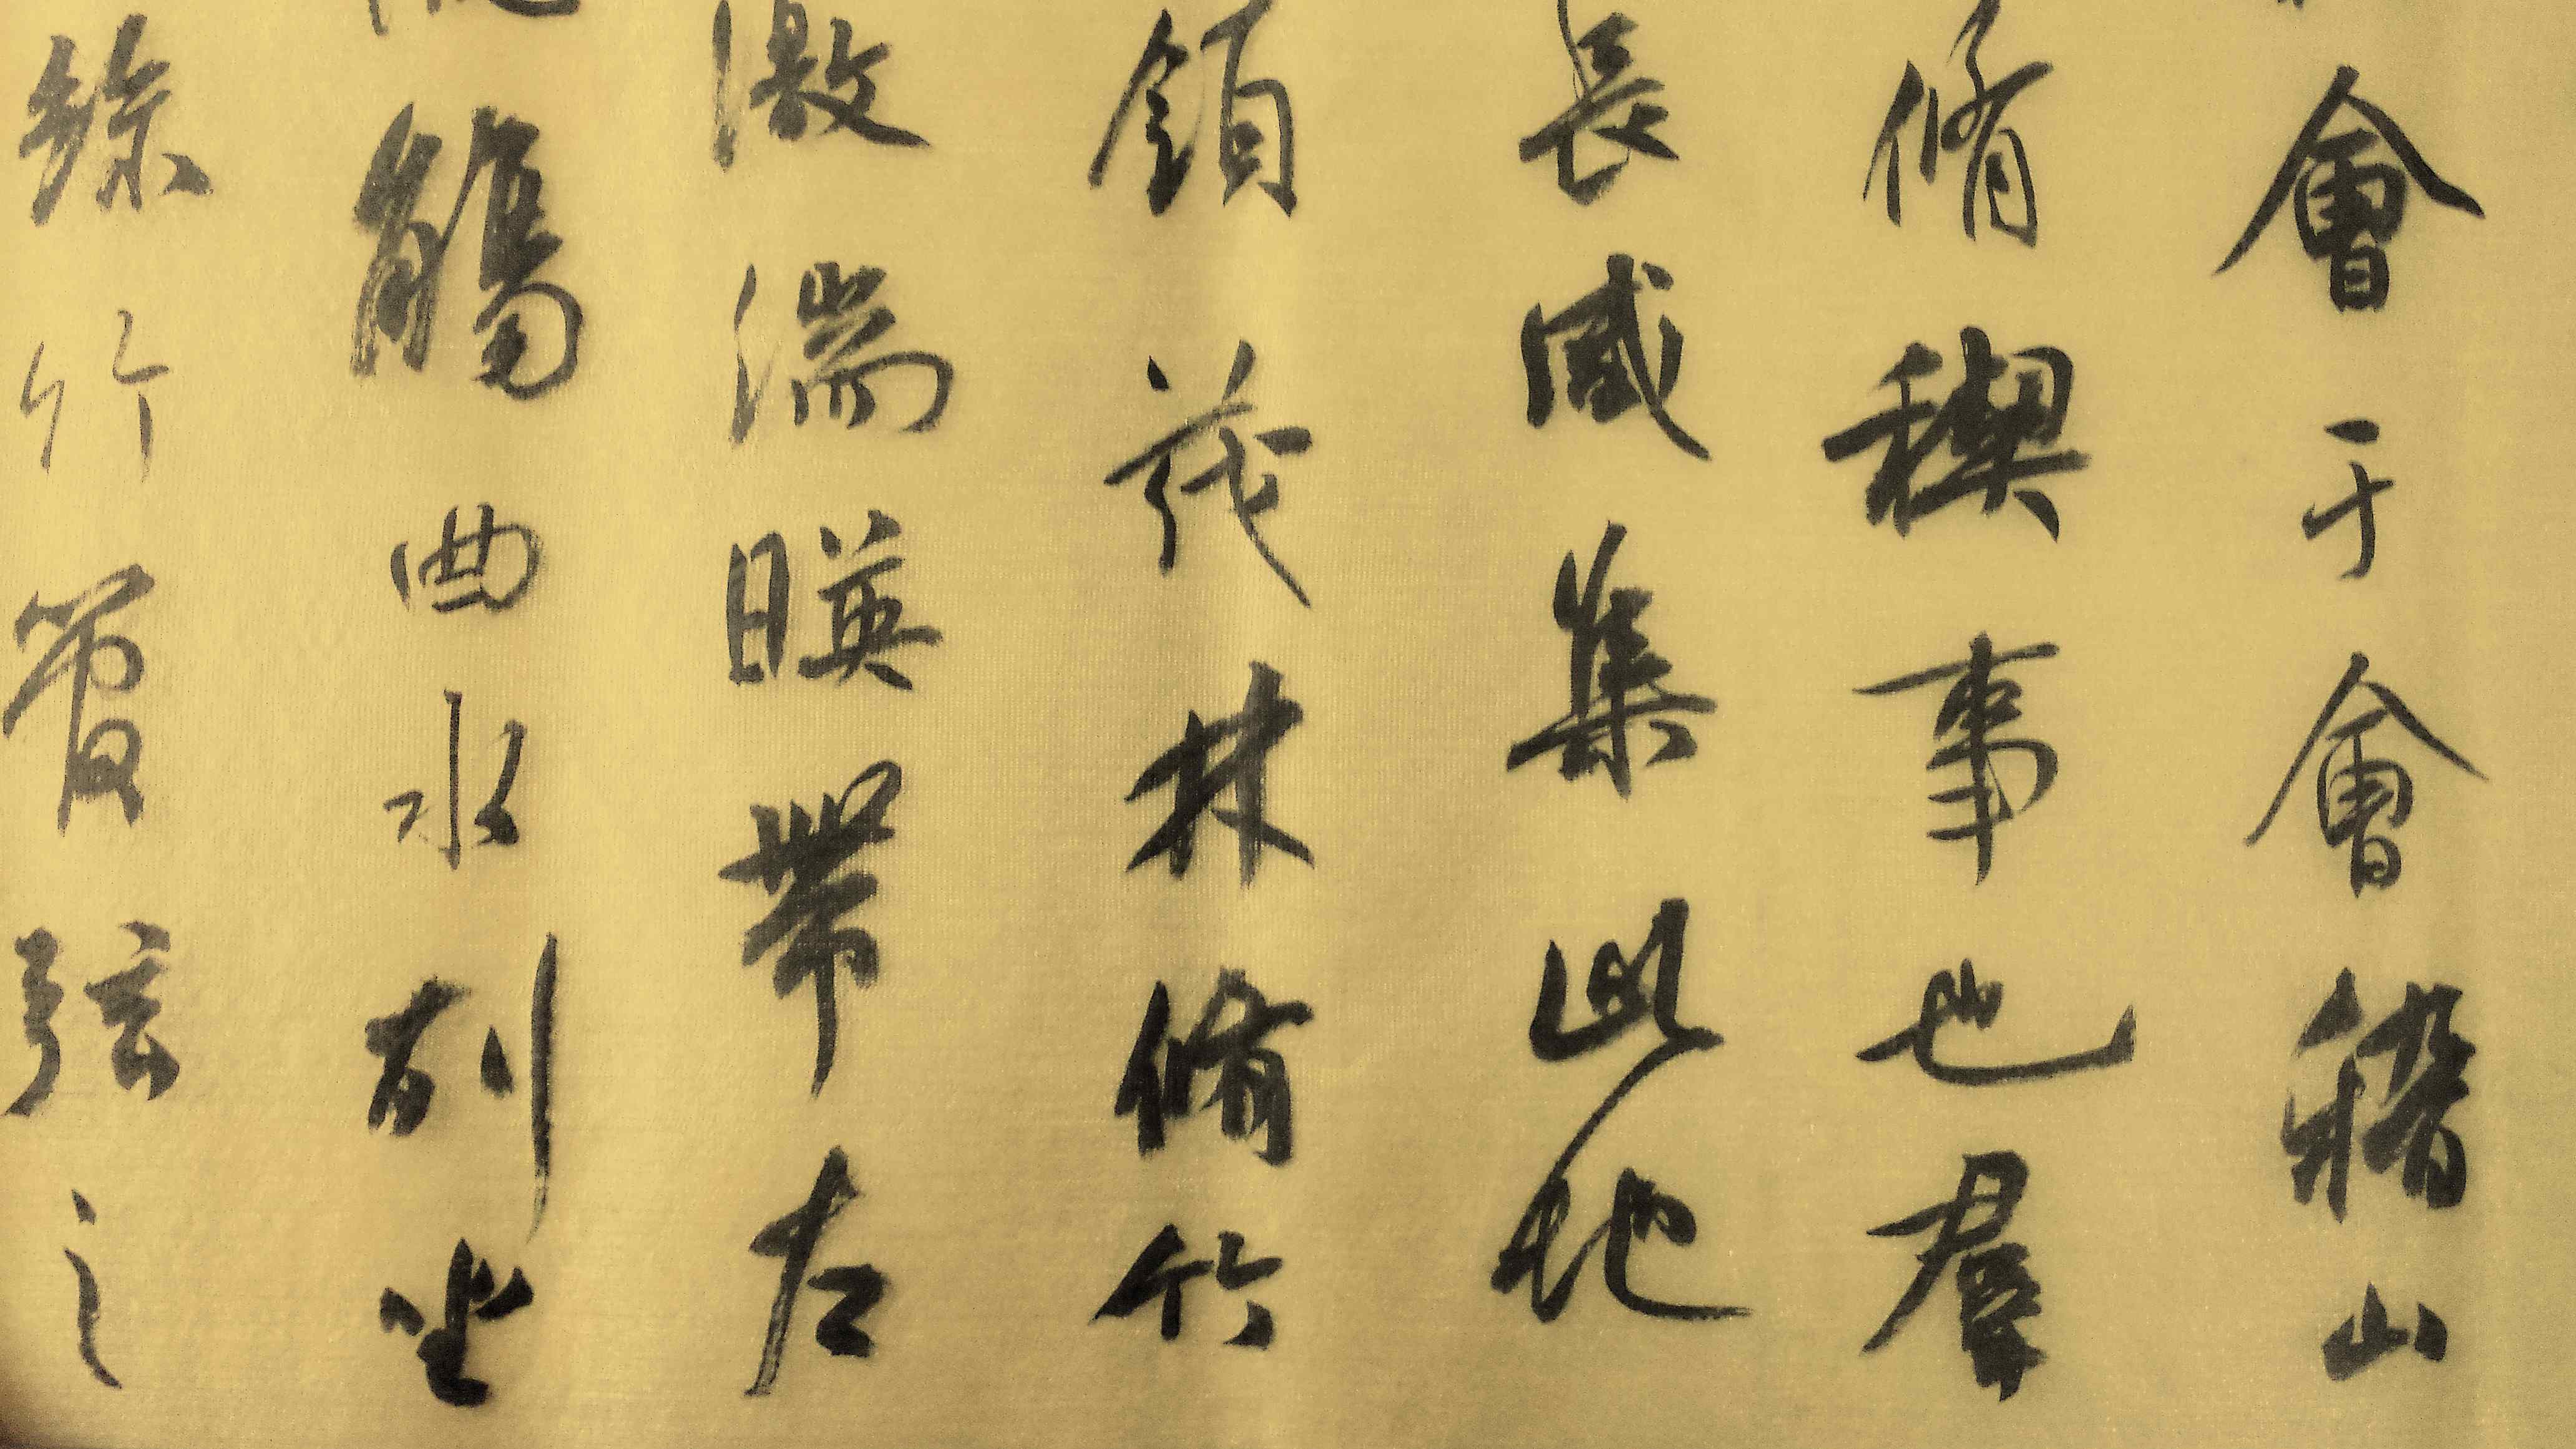 會于會稽山
脩稧事也羣
長咸集此地
領茂林脩竹
激湍暎帶左
觴曲水列坐
絲竹管弦之